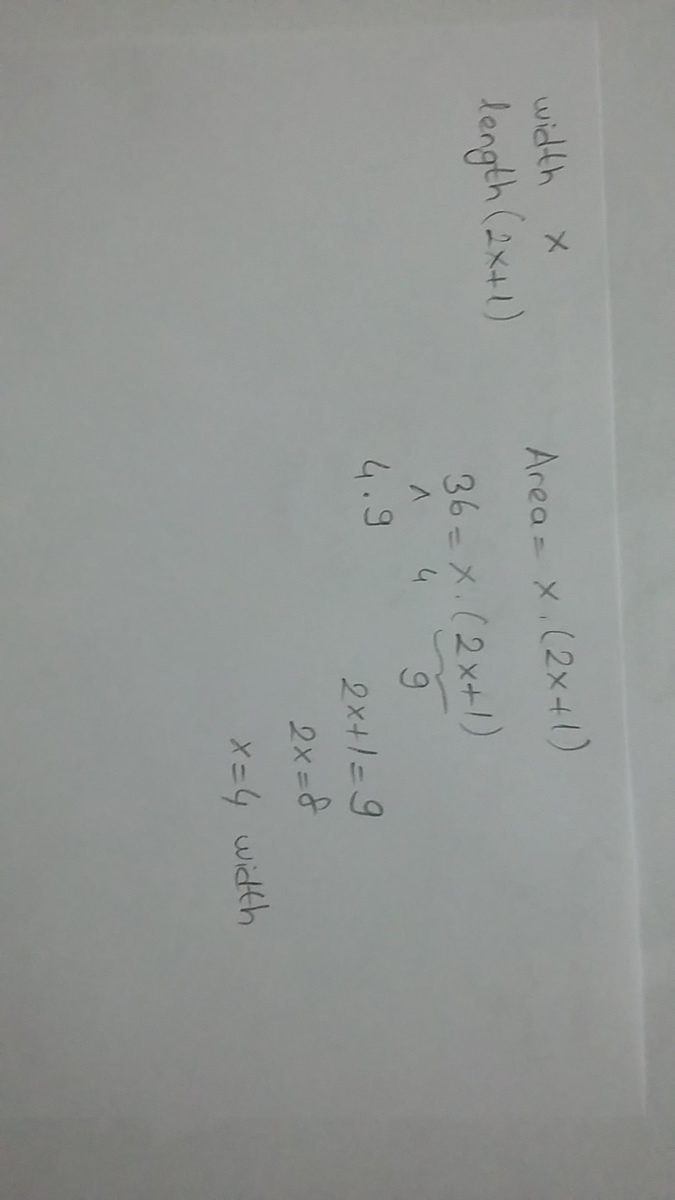 width x
length (2x+1)
Area = x . (2x+1)
36 = x . (2x+1)
^ 4 9
4 . 9
2x+1=9
2x=8
x=4 width